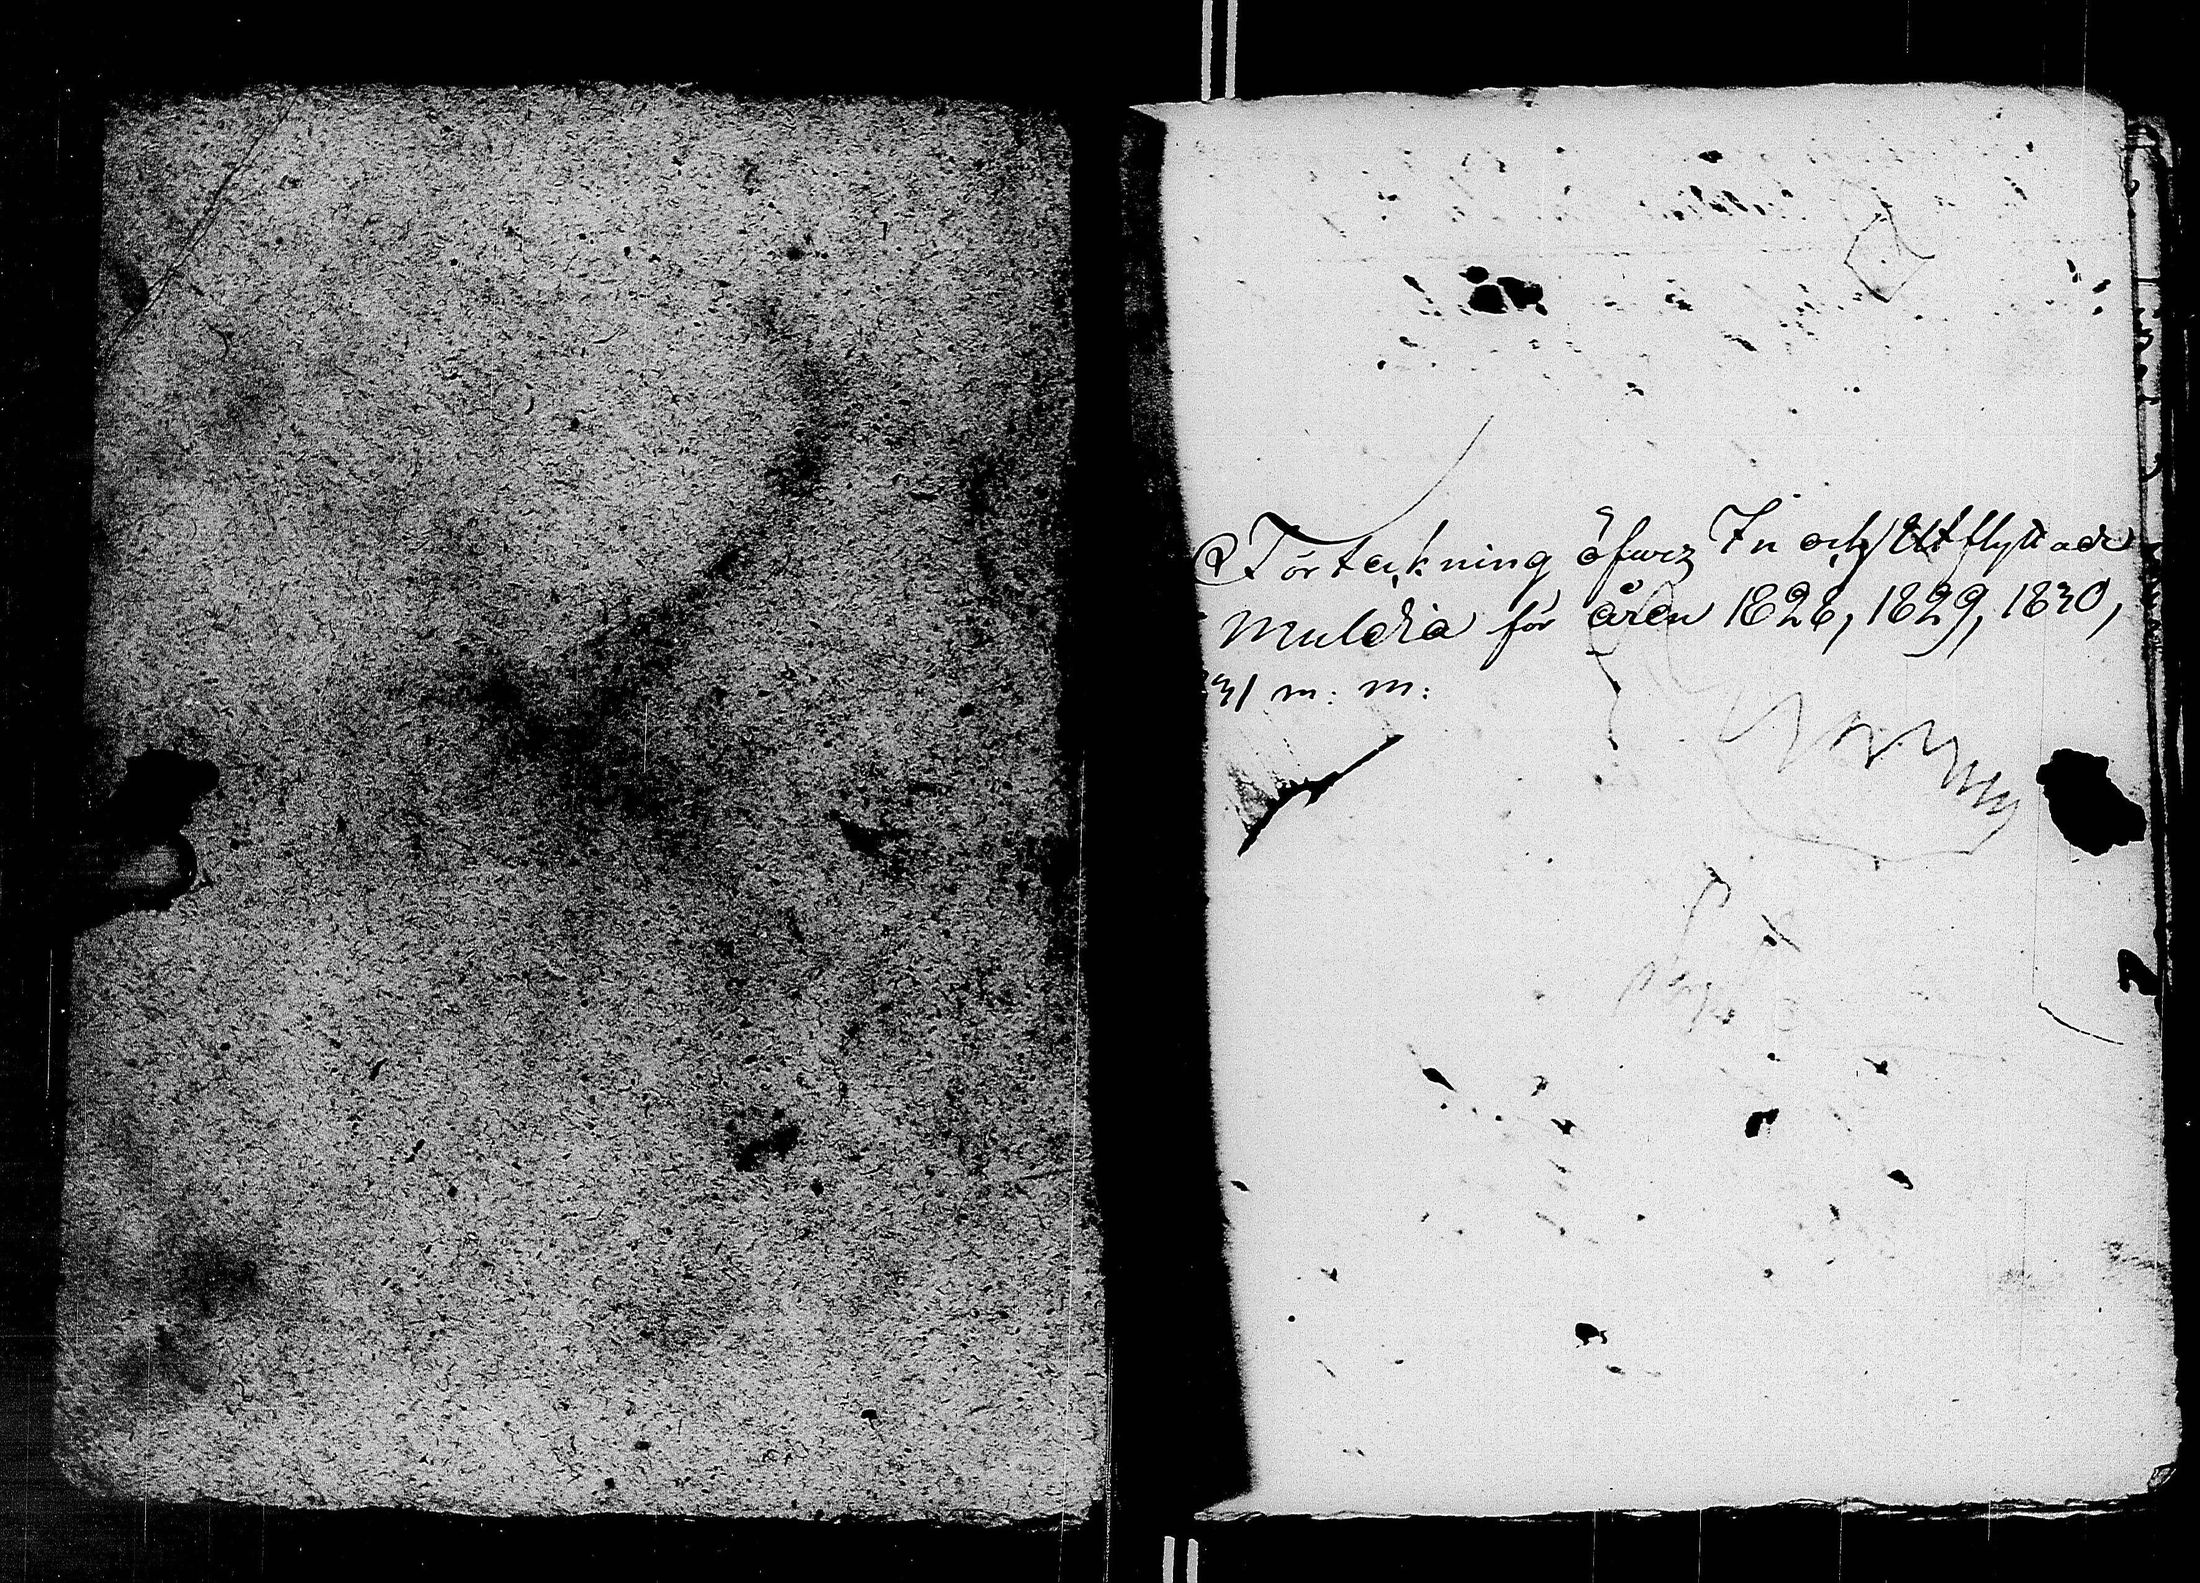 Förteckning öfwer In och Utflyttade
Muldia för åren 1828, 1829, 1830,
31 m: m: